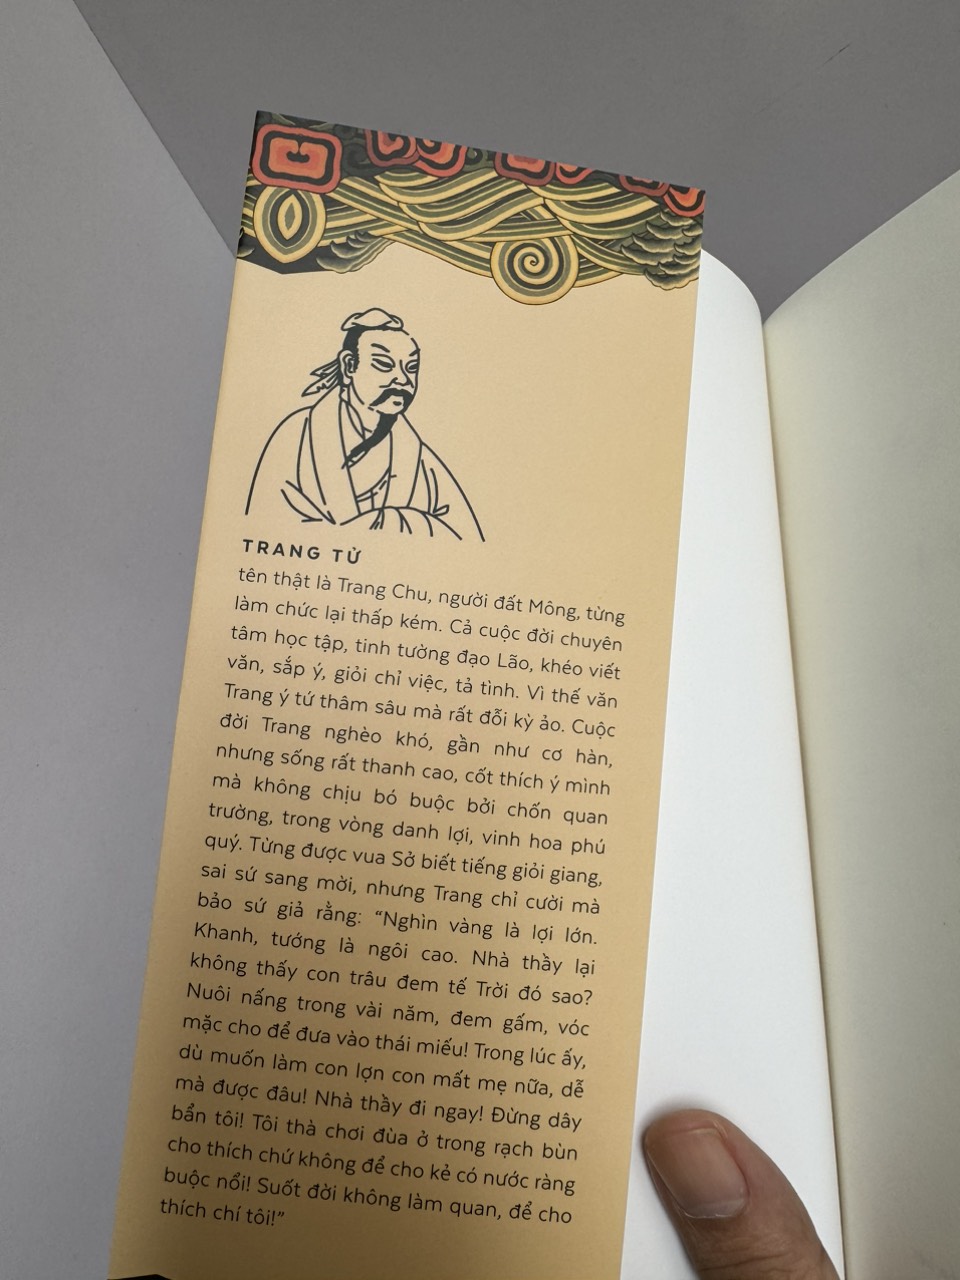 TRANG TỬ
tên thật là Trang Chu, người đất Mông, từng
làm chức lại thấp kém. Cả cuộc đời chuyên
tâm học tập, tinh tường đạo Lão, khéo viết
văn, sắp ý, giỏi chỉ việc, tả tình. Vì thế văn
Trang ý tứ thâm sâu mà rất đỗi kỳ ảo. Cuộc
đời Trang nghèo khó, gần như cơ hàn,
nhưng sống rất thanh cao, cốt thích ý mình
mà không chịu bó buộc bởi chốn quan
trường, trong vòng danh lợi, vinh hoa phú
quý. Từng được vua Sở biết tiếng giỏi giang,
sai sứ sang mời, nhưng Trang chỉ cười mà
bảo sứ giả rằng: “Nghìn vàng là lợi lớn.
Khanh, tướng là ngôi cao. Nhà thầy lại
không thấy con trâu đem tế Trời đó sao?
Nuôi nấng trong vài năm, đem gấm, vóc
mặc cho để đưa vào thái miếu! Trong lúc ấy,
dù muốn làm con lợn con mất mẹ nữa, dễ
mà được đâu! Nhà thầy đi ngay! Đừng dây
bẩn tôi! Tôi thà chơi đùa ở trong rạch bùn
cho thích chứ không để cho kẻ có nước ràng
buộc nổi! Suốt đời không làm quan, để cho
thích chí tôi!”